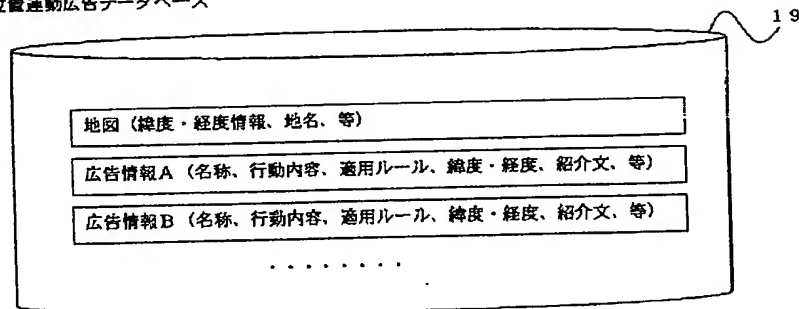 位置連動広告データベース
19
地図（緯度・経度情報、地名、等）
広告情報A（名称、行動内容、適用ルール、緯度・経度、紹介文、等）
広告情報B（名称、行動内容、適用ルール、緯度・経度、紹介文、等）
........